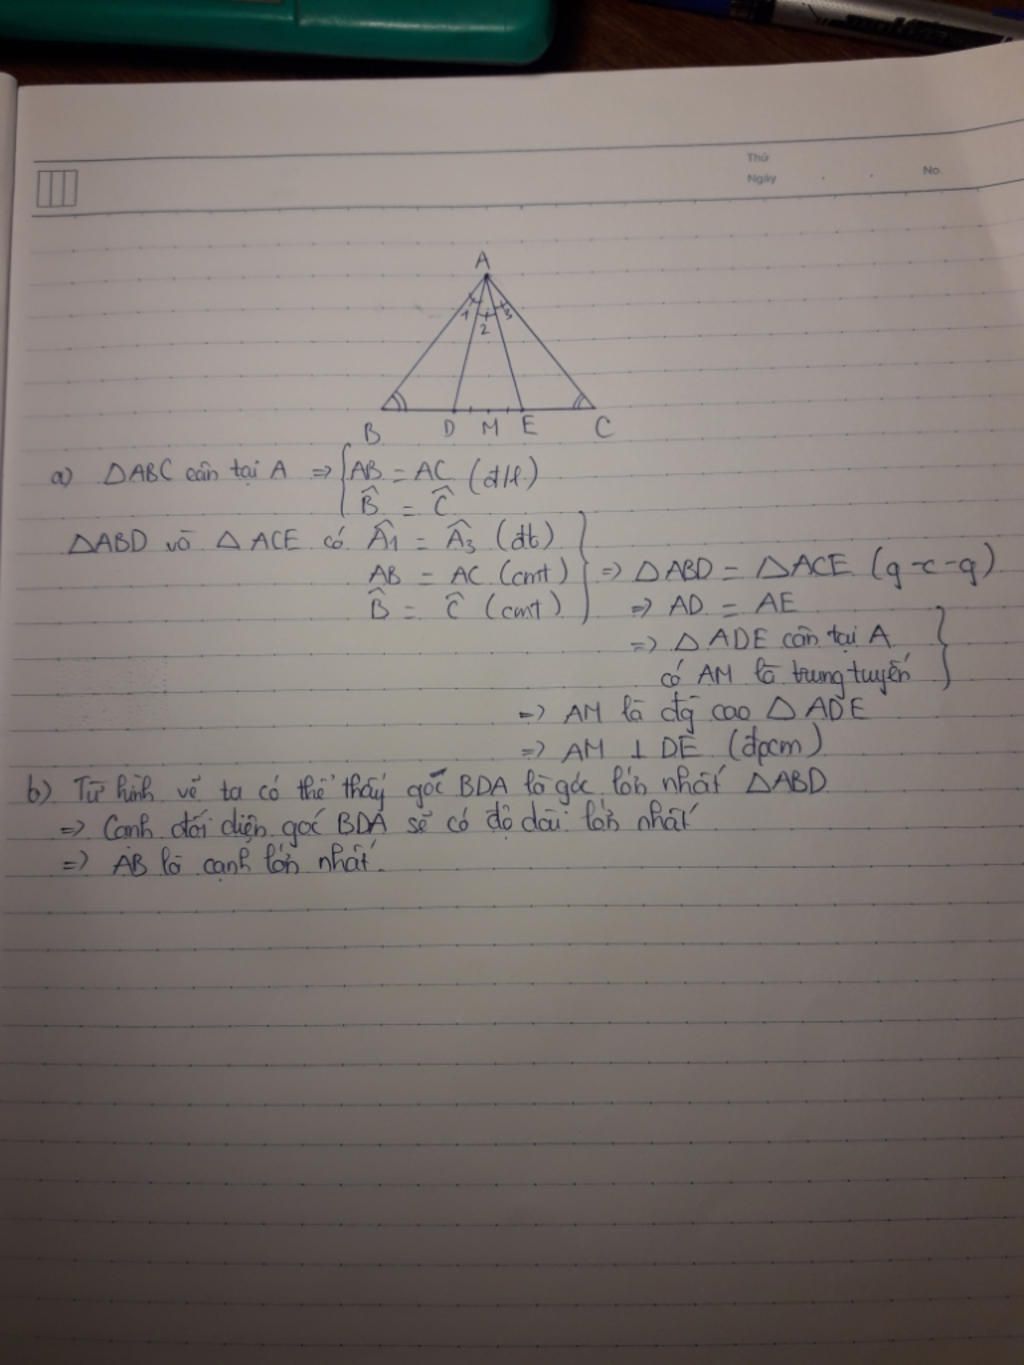 Thứ
Ngày
No.
A
1 2 3
B D M E C
a) △ABC cân tại A => { AB = AC (đ/n)
B̂ = Ĉ
△ABD và △ACE có Â1 = Â3 (đb)
AB = AC (cmt) } => △ABD = △ACE (g-c-g)
B̂ = Ĉ (cmt) => AD = AE
=> △ADE cân tại A
có AM là trung tuyến
=> AM là đg cao △ADE
=> AM ⊥ DE (đpcm)
b) Từ hình vẽ ta có thể thấy góc BDA là góc lớn nhất △ABD
=> Cạnh đối diện góc BDA sẽ có độ dài lớn nhất
=> AB là cạnh lớn nhất.